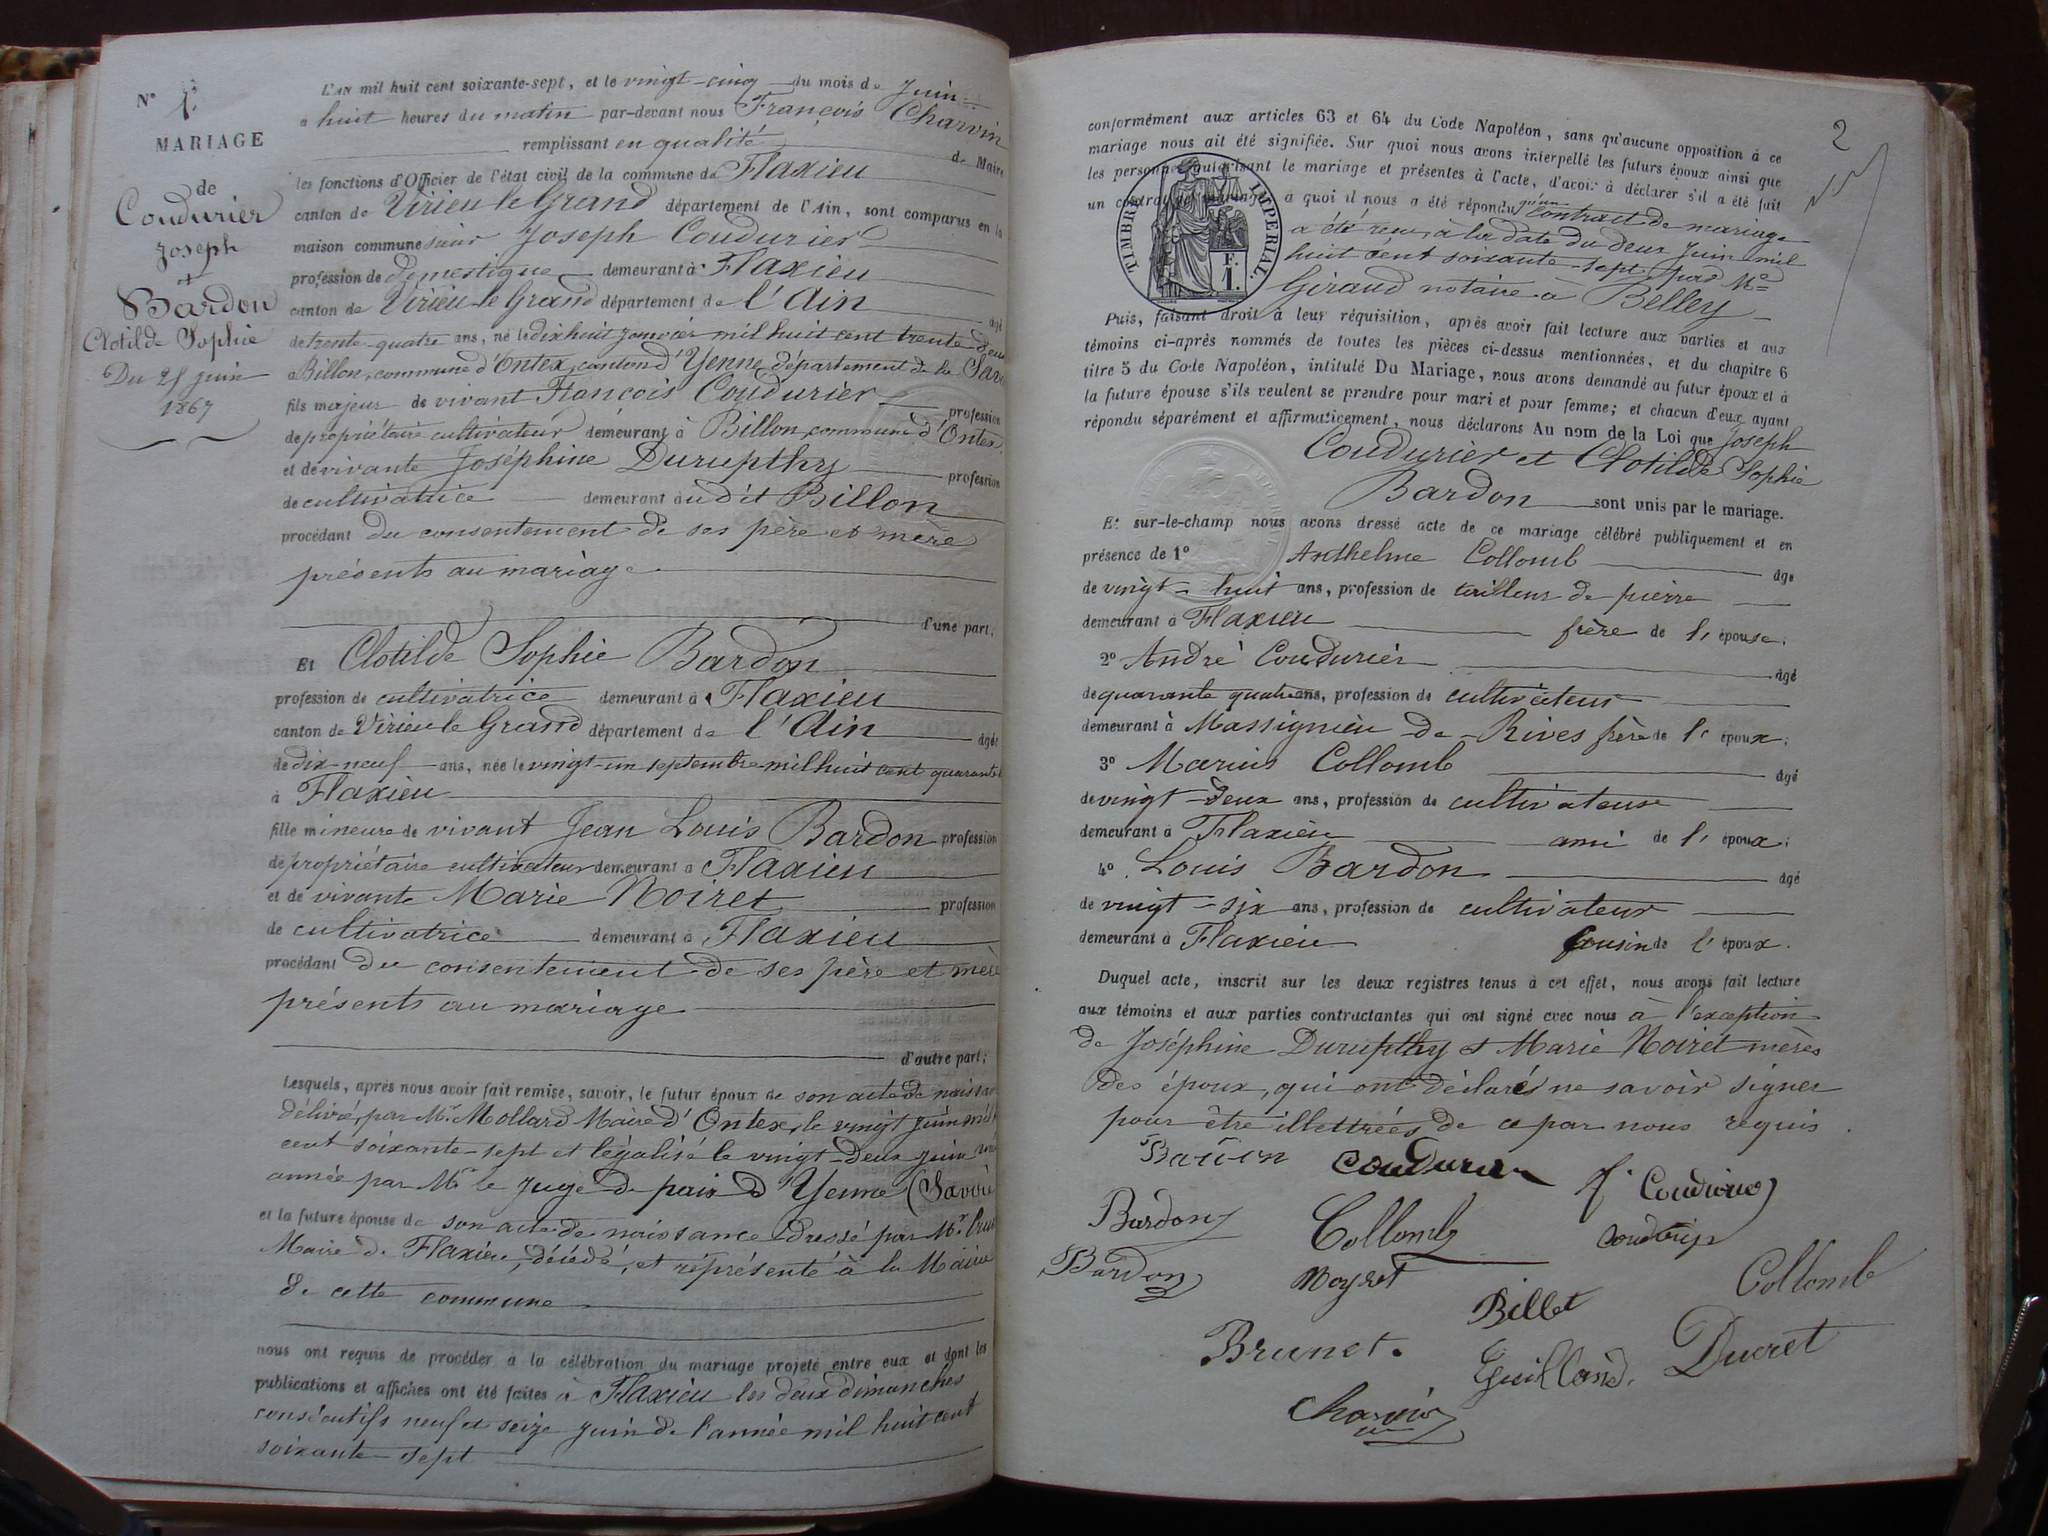 N° 1
MARIAGE
de
Coudurier
Joseph
+
Bardon
Clotilde Sophie
Du 25 juin
1867
L'AN mil huit cent soixante-sept, et le vingt-cinq du mois de Juin
a huit heures du matin par-devant nous François Charvin
remplissant en qualité de Maire
les fonctions d'Officier de l'état civil de la commune de Flaxieu
canton de Virieu le Grand département de l'Ain, sont comparus en la
maison commune sieur Joseph Coudurier
profession de domestique demeurant à Flaxieu
canton de Virieu-le Grand département de l'Ain âgé
de trente-quatre ans, né le dix huit janvier mil huit cent trente-deux
à Billon, commune d'Ontex, canton d'Yenne, département de la Savo
fils majeur de vivant François Coudurier profession
de propriétaire cultivateur demeurant à Billon, commune d'Ontex,
et de vivante Joséphine Durupthy profession
de cultivatrice demeurant au dit Billon
procédant du consentement de ses père et mère
présents au mariage
d'une part;
Et Clotilde Sophie Bardon
profession de cultivatrice demeurant à Flaxieu
canton de Virieu le Grand département de l'Ain âgée
de dix-neuf ans, née le vingt-un septembre mil huit cent quarante
à Flaxieu
fille mineure de vivant Jean Louis Bardon profession
de propriétaire cultivateur demeurant à Flaxieu
et de vivante Marie Noiret profession
de cultivatrice demeurant à Flaxieu
procédant du consentement de ses père et mère
présents au mariage
d'autre part;
Lesquels, après nous avoir fait remise, savoir, le futur époux de son acte de naissan
délivré, par Mr Mollard Maire d'Ontex, le vingt juin mil
cent soixante-sept et légalisé le vingt-deux juin
année par Mr le Juge de paix d'Yenne (Savoie
et la future épouse de son acte de naissance dressé par Mr
Maire de Flaxieu, décédé, et représenté à la Mairie
de cette commune
nous ont requis de procéder a la célébration du mariage projeté entre eux et dont les
publications et affiches ont été faites à Flaxieu les deux dimanches
consécutifs neuf et seize juin de l'année mil huit cent
soixante-sept
2
conformément aux articles 63 et 64 du Code Napoléon, sans qu'aucune opposition à ce
mariage nous ait été signifiée. Sur quoi nous avons interpellé les futurs époux ainsi que
les personnes autorisant le mariage et présentes à l'acte, d'avoir à déclarer s'il a été fait
un contrat de mariage à quoi il nous a été répondu qu'un contrat de mariage
a été reçu à la date du deux Juin mil
huit cent soixante-sept par Me
Giraud notaire à Belley
TIMBRE IMPERIAL.
F.
1.
Puis, faisant droit à leur réquisition, après avoir fait lecture aux parties et aux
témoins ci-après nommés de toutes les pièces ci-dessus mentionnées, et du chapitre 6
titre 5 du Code Napoléon, intitulé Du Mariage, nous avons demandé au futur époux et à
la future épouse s'ils veulent se prendre pour mari et pour femme; et chacun d'eux ayant
répondu séparément et affirmativement, nous déclarons Au nom de la Loi que Joseph
Coudurier et Clotilde Sophie
Bardon sont unis par le mariage.
Et sur-le-champ nous avons dressé acte de ce mariage célébré publiquement et en
présence de 1° Anthelme Collomb âgé
de vingt-huit ans, profession de tailleur de pierre
demeurant à Flaxieu frère de l'épouse;
2° André Coudurier âgé
de quarante quatre ans, profession de cultivateur
demeurant à Massignieu-de-Rives frère de l'époux;
3° Marius Collomb âgé
de vingt-deux ans, profession de cultivateur
demeurant à Flaxieu ami de l'époux;
4° Louis Bardon âgé
de vingt-six ans, profession de cultivateur
demeurant à Flaxieu cousin de l'époux.
Duquel acte, inscrit sur les deux registres tenus à cet effet, nous avons fait lecture
aux témoins et aux parties contractantes qui ont signé avec nous à l'exception
de Joséphine Durupthy et Marie Noiret mères
des époux, qui ont déclaré ne savoir signer
pour être illettrées de ce par nous requis.
Coudurier
Bardon Collomb
Bardon Noyret Billet Collomb
Brunet. Guilland. Ducret
Charvin